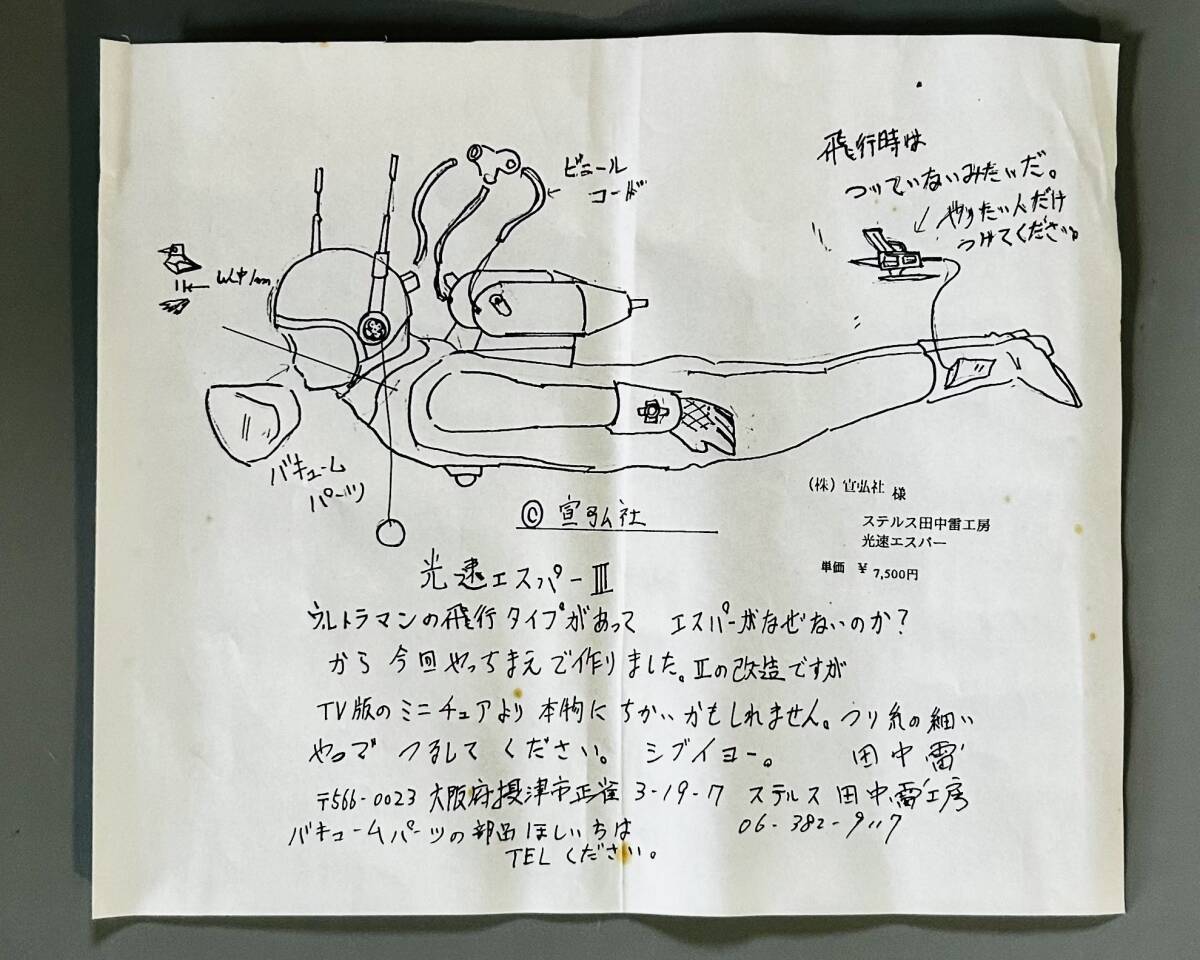 飛行時は
つけていないみたいだ。
やりたい人だけ
つけてください。
ビニール
コード
バキューム
パーツ
© 宣弘社
(株)宣弘社 様
ステルス田中雷工房
光速エスパー
単価 ¥ 7,500円
光速エスパーⅢ
ウルトラマンの飛行タイプがあって エスパーがなぜないのか?
から今回やっちまえで作りました。Ⅱの改造ですが
TV版のミニチュアより本物にちかいかもしれません。つり糸の細い
やつで つるしてください。 シブイヨー。 田中雷
〒566-0023 大阪府摂津市正雀 3-19-7 ステルス 田中雷工房
06-382-9117
バキュームパーツの部品ほしい
TELください。